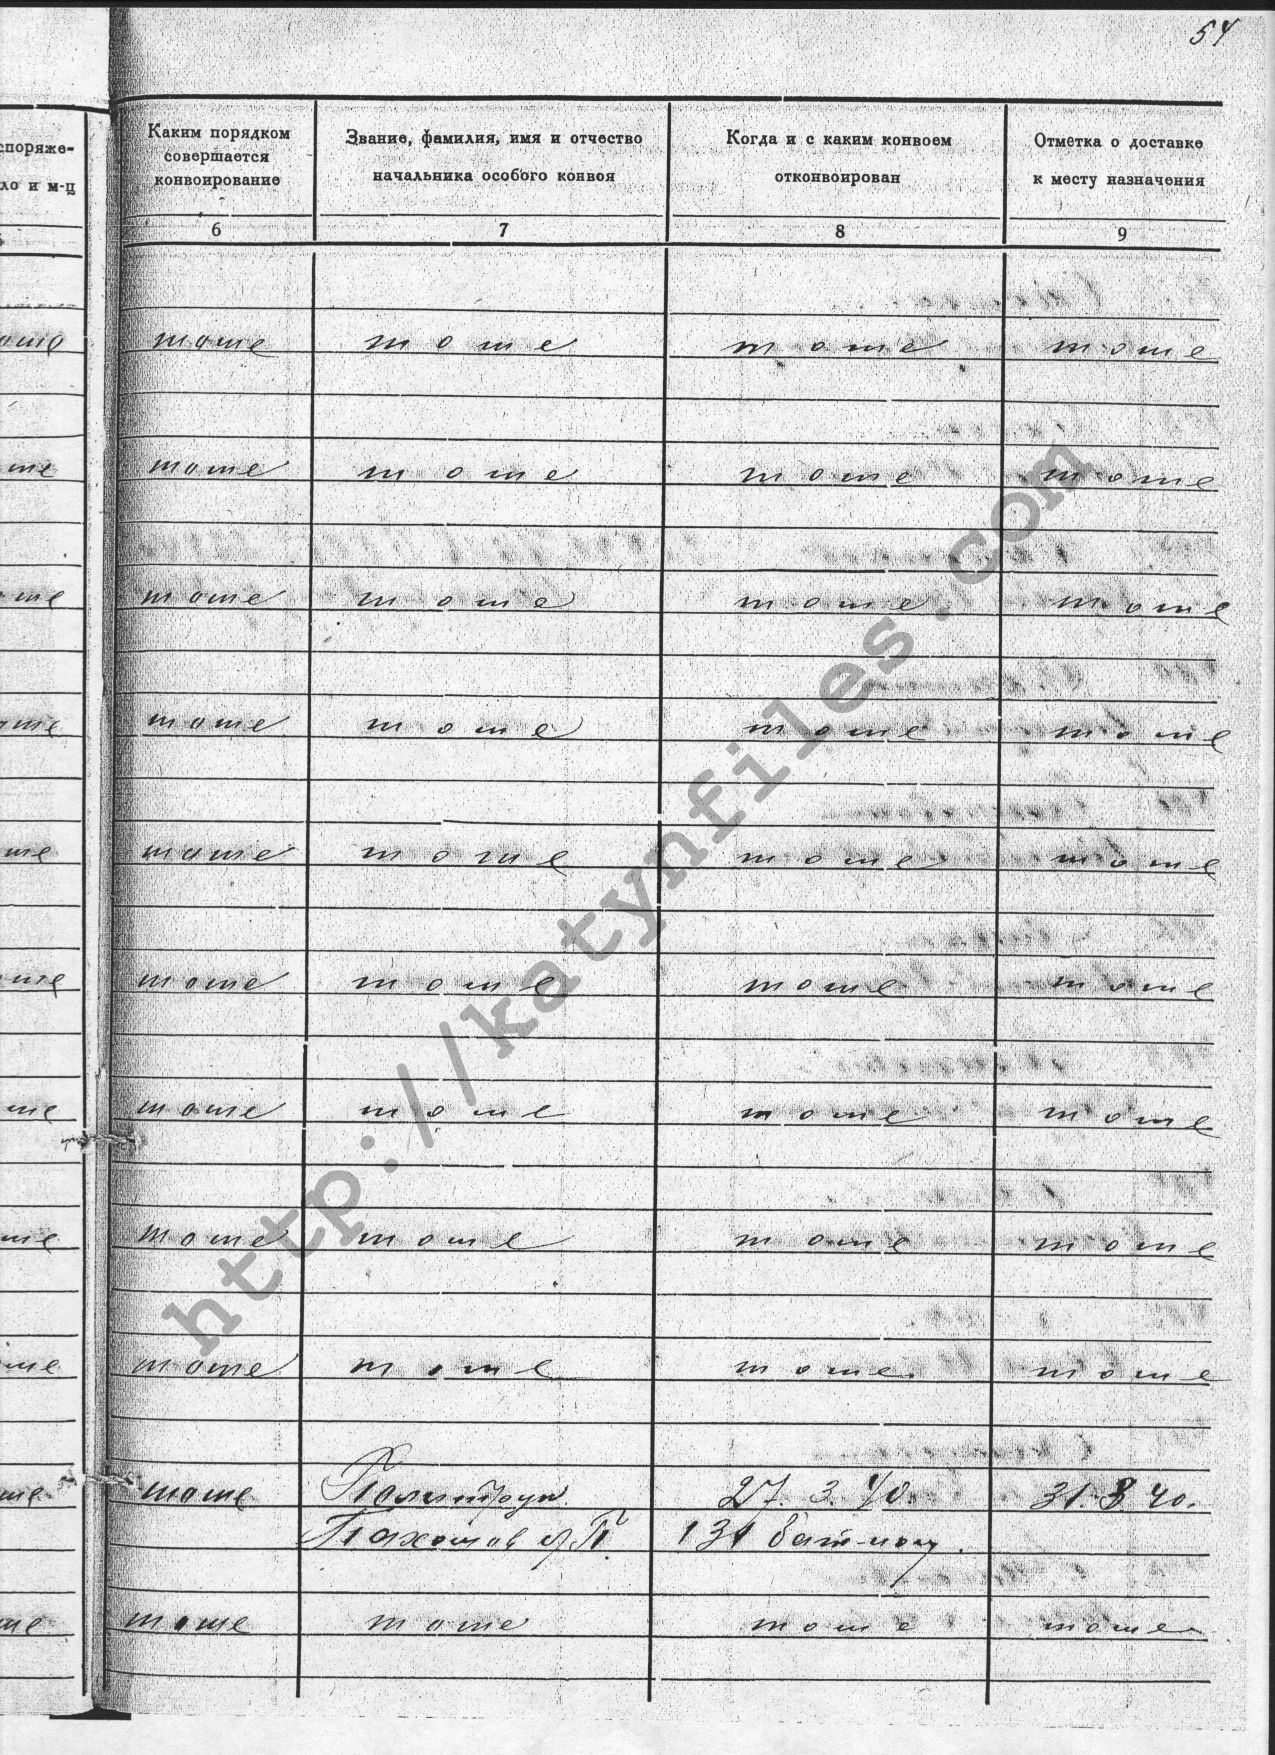 54
споряже-
ло и м-ц
Каким порядком
совершается
конвоирование
Звание, фамилия, имя и отчество
начальника особого конвоя
Когда и с каким конвоем
отконвоирован
Отметка о доставке
к месту назначения
6 7 8 9
тоже тоже тоже тоже
тоже тоже тоже тоже
тоже тоже тоже тоже
тоже тоже тоже тоже
тоже тоже тоже тоже
тоже тоже тоже тоже
тоже тоже тоже тоже
тоже тоже тоже тоже
тоже тоже тоже тоже
тоже Политрук 27.3.40. 31.3.40.
Пахомов 131 бат-ном.
тоже тоже тоже тоже
http://katynfiles.com